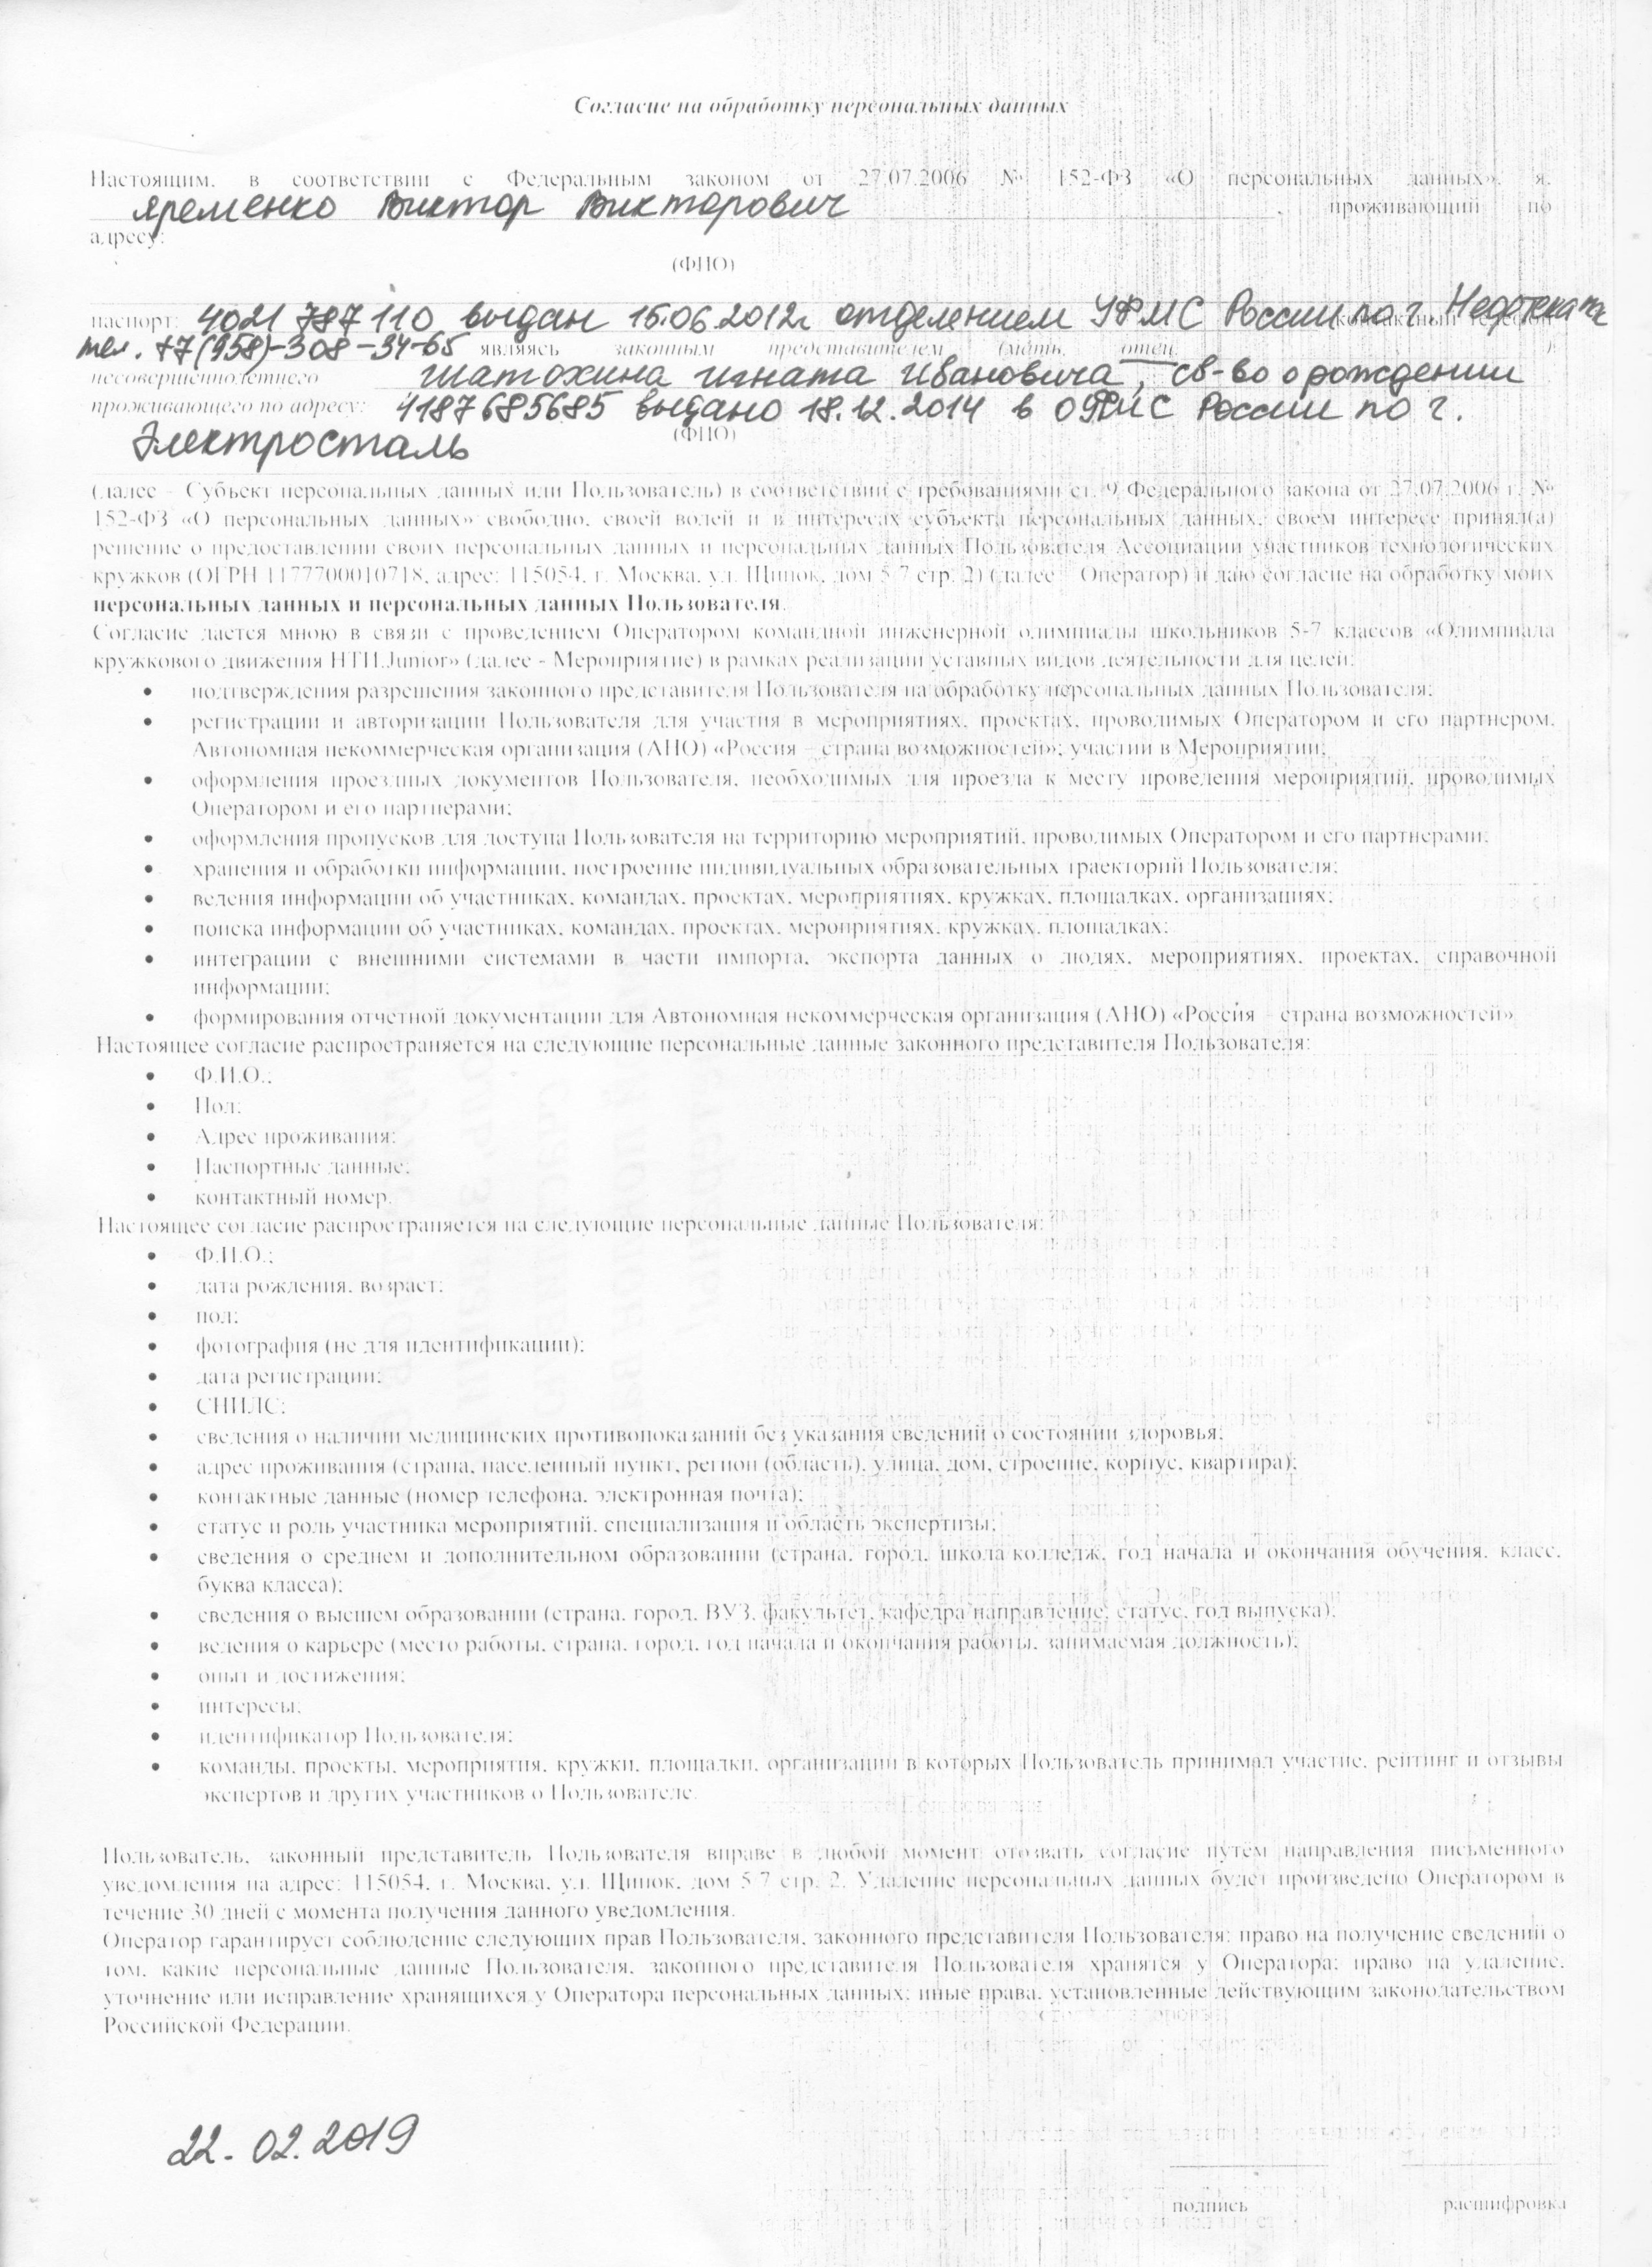 Согласие на обработку персональных данных
Настоящим, в соответствии с Федеральным законом от 27.07.2006 № 152-ФЗ «О персональных данных», я,
Яременко Виктор Викторович, проживающий по
адресу:
(ФИО)
паспорт: 4021 787 110 выдан 15.06.2012г отделением УФМС России по г.
тел. +7(958)-308-34-65 являясь законным представителем (мать, отец, )
несовершеннолетнего Шатохина Игната Ивановича, св-во о рождении
проживающего по адресу: 4187685685 выдано 18.12.2014 в ОУФМС России по г.
(ФИО)
Электросталь
(далее – Субъект персональных данных или Пользователь) в соответствии с требованиями ст. 9 Федерального закона от 27.07.2006 г. №
152-ФЗ «О персональных данных» свободно, своей волей и в интересах субъекта персональных данных, своем интересе принял(а)
решение о предоставлении своих персональных данных и персональных данных Пользователя Ассоциации участников технологических
кружков (ОГРН 1177700010718, адрес: 115054, г. Москва, ул. Щипок, дом 5/7 стр. 2) (далее – Оператор) и даю согласие на обработку моих
персональных данных и персональных данных Пользователя.
Согласие дается мною в связи с проведением Оператором командной инженерной олимпиады школьников 5-7 классов «Олимпиада
кружкового движения НТИ.Junior» (далее - Мероприятие) в рамках реализации уставных видов деятельности для целей:
• подтверждения разрешения законного представителя Пользователя на обработку персональных данных Пользователя;
• регистрации и авторизации Пользователя для участия в мероприятиях, проектах, проводимых Оператором и его партнером,
Автономная некоммерческая организация (АНО) «Россия – страна возможностей»; участии в Мероприятии;
• оформления проездных документов Пользователя, необходимых для проезда к месту проведения мероприятий, проводимых
Оператором и его партнерами;
• оформления пропусков для доступа Пользователя на территорию мероприятий, проводимых Оператором и его партнерами;
• хранения и обработки информации, построение индивидуальных образовательных траекторий Пользователя;
• ведения информации об участниках, командах, проектах, мероприятиях, кружках, площадках, организациях;
• поиска информации об участниках, командах, проектах, мероприятиях, кружках, площадках;
• интеграции с внешними системами в части импорта, экспорта данных о людях, мероприятиях, проектах, справочной
информации;
• формирования отчетной документации для Автономная некоммерческая организация (АНО) «Россия – страна возможностей»
Настоящее согласие распространяется на следующие персональные данные законного представителя Пользователя:
• Ф.И.О.;
• Пол;
• Адрес проживания;
• Паспортные данные;
• контактный номер.
Настоящее согласие распространяется на следующие персональные данные Пользователя:
• Ф.И.О.;
• дата рождения, возраст;
• пол;
• фотография (не для идентификации);
• дата регистрации;
• СНИЛС;
• сведения о наличии медицинских противопоказаний без указания сведений о состоянии здоровья;
• адрес проживания (страна, населенный пункт, регион (область), улица, дом, строение, корпус, квартира);
• контактные данные (номер телефона, электронная почта);
• статус и роль участника мероприятий, специализация и область экспертизы;
• сведения о среднем и дополнительном образовании (страна, город, школа/колледж, год начала и окончания обучения, класс,
буква класса);
• сведения о высшем образовании (страна, город, ВУЗ, факультет, кафедра/направление, статус, год выпуска);
• ведения о карьере (место работы, страна, город, год начала и окончания работы, занимаемая должность);
• опыт и достижения;
• интересы;
• идентификатор Пользователя;
• команды, проекты, мероприятия, кружки, площадки, организации в которых Пользователь принимал участие, рейтинг и отзывы
экспертов и других участников о Пользователе.
Пользователь, законный представитель Пользователя вправе в любой момент отозвать согласие путем направления письменного
уведомления на адрес: 115054, г. Москва, ул. Щипок, дом 5/7 стр. 2. Удаление персональных данных будет произведено Оператором в
течение 30 дней с момента получения данного уведомления.
Оператор гарантирует соблюдение следующих прав Пользователя, законного представителя Пользователя: право на получение сведений о
том, какие персональные данные Пользователя, законного представителя Пользователя хранятся у Оператора; право на удаление,
уточнение или исправление хранящихся у Оператора персональных данных; иные права, установленные действующим законодательством
Российской Федерации.
22.02.2019
подпись расшифровка